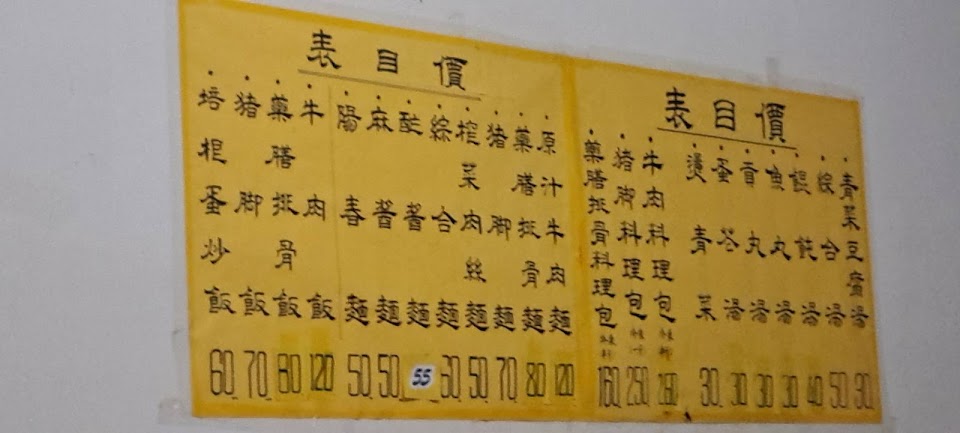 價目表
青菜豆腐湯
綜合湯 50
餛飩湯 40
魚丸湯 30
貢丸湯 30
蛋花湯 30
燙青菜 30
牛肉料理包
猪脚料理包 250
藥膳排骨料理包 160
價目表
原汁牛肉麵 120
藥膳排骨麵 80
猪脚麵 70
榨菜肉絲麵 50
綜合麵 60
酢醬麵 55
麻醬麵 50
陽春麵 50
牛肉飯 120
藥膳排骨飯 80
猪脚飯 70
培根蛋炒飯 60